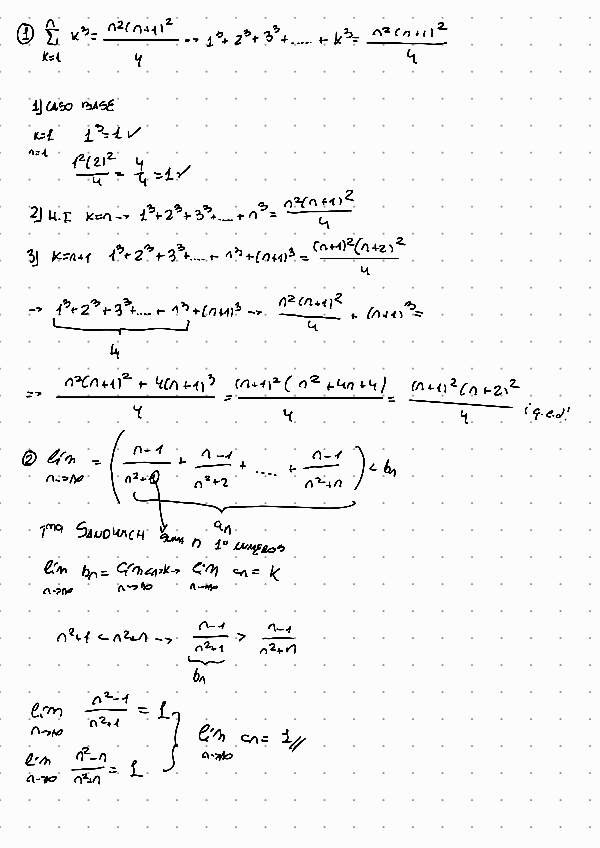 ① n∑k=1 k³ = n²(n+1)²/4 --> 1³+2³+3³+.....+k³ = n²(n+1)²/4
1) CASO BASE
k=1 1³=1 ✓
n=1
1²(2)²/4 = 4/4 = 1 ✓
2) H.I k=n -> 1³+2³+3³+....+n³ = n²(n+1)²/4
3) k=n+1 1³+2³+3³+....+n³+(n+1)³ = (n+1)²(n+2)²/4
-> 1³+2³+3³+....+n³+(n+1)³ -> n²(n+1)²/4 + (n+1)³ =
=> n²(n+1)² + 4(n+1)³/4 = (n+1)²(n²+4n+4)/4 = (n+1)²(n+2)²/4 ¡q.e.d!
② lim n->∞ = ( n-1/n²+1 + n-1/n²+2 + ..... + n-1/n²+n ) < bn
an
Tma SANDWICH n 1º numeros
lim n->∞ bn = lim n->∞ cn = k -> lim n->∞ an = k
n²+1 < n²+n -> n-1/n²+1 > n-1/n²+n
bn
lim n->∞ n²-1/n²+1 = 1
lim n->∞ cn = 1//
lim n->∞ n²-n/n²+n = 1